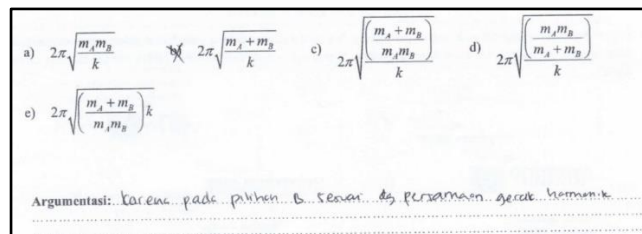 a) 2π√(m_A m_B / k) b) 2π√((m_A + m_B) / k) c) 2π√(((m_A + m_B) / (m_A m_B)) / k) d) 2π√(((m_A m_B) / (m_A + m_B)) / k)
e) 2π√(((m_A + m_B) / (m_A m_B)) k)
Argumentasi: karena pada pilihan B sesuai dg persamaan gerak harmonik